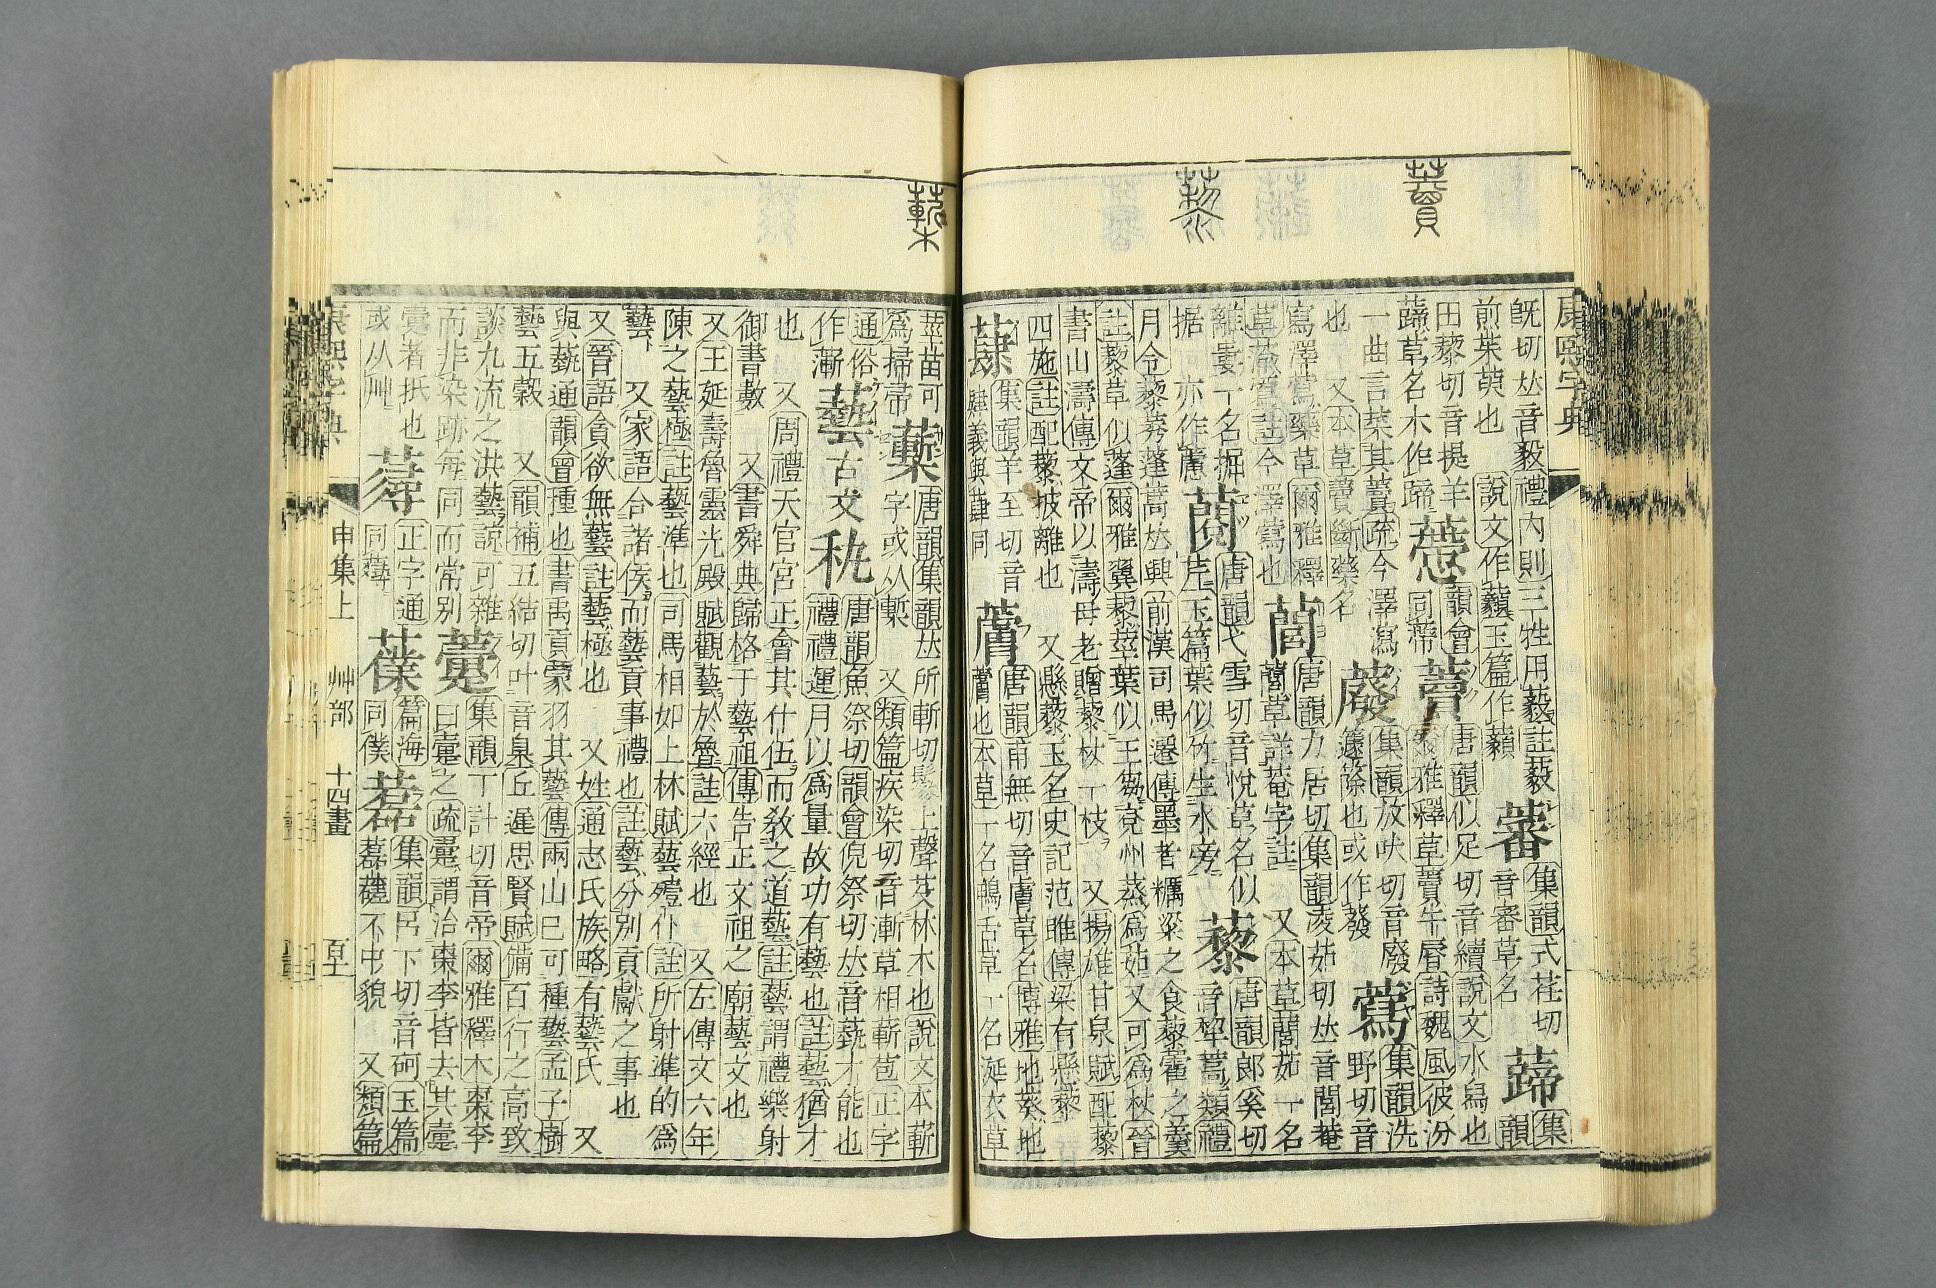 康熙字典
既切𠀤音毅禮內則三牲用藙註藙
煎茱萸也 說文作䕫玉篇作藾 審 集韻式荏切 音審草名 蕛 集韻
田黎切音提羊 蔕 韻會同蔕 藚 唐韻似足切音續說文水舄也
蕛草名木作蹄 爾雅釋草藚牛脣詩魏風彼汾
一曲言采其藚疏今澤瀉 集韻放吠切音廢 蕮 集韻洗
也 又本草藚斷藥名 籧篨也或作䉬 野切音
寫澤蕮藥草爾雅釋 藘 唐韻力居切集韻淩如切𠀤音閭菴
草蕍蕮註今澤蕮也 藘草詳菴字註 又本草藘茹一名
離婁一名掘 䕞 唐韻弋雪切音悅草名似 藜 唐韻郎奚切
据 亦作蘆 芹玉篇葉似竹生水旁 音犂蒿類禮
月令藜莠蓬蒿𠀤興前漢司馬遷傳墨者糲粱之食藜藿之羹
註藜草似蓬爾雅翼藜莖葉似王芻兗州蒸爲茹又可爲杖晉
書山濤傳文帝以濤母老贈藜杖一枝 又揚雄甘泉賦配藜
四施註配藜披離也 又懸藜玉名史記范睢傳梁有懸藜
蕼 集韻羊至切音肄義與蕼同 䕎 唐韻甫無切音膚草名博雅地葵地䕎也本草一名鷁舌草一名涎衣草
莖苗可爲掃帚 蘄 唐韻集韻𠀤所斬切髟上聲芟林木也說文本蔪
字或从槧 又類篇疾染切音漸草相蔪苞正字
通俗作漸 藝 古文秇 唐韻魚祭切韻會倪祭切𠀤音蓺才能也
禮禮運月以爲量故功有藝也註藝猶才
也 又周禮天官宮正會其什伍而敎之道藝註藝謂禮樂射
御書數 又書舜典歸格于藝祖傳告正文祖之廟藝文也
又王延壽魯靈光殿賦觀藝於魯註六經也 又左傳文六年
陳之藝極註藝準也司馬相如上林賦藝殪仆註所射準的爲
藝 又家語合諸侯而藝貢事禮也註藝分別貢獻之事也
又晉語貪欲無藝註藝極也 又姓通志氏族略有藝氏 又
與蓺通韻會種也書禹貢蒙羽其藝傳兩山已可種藝孟子樹
藝五穀 又韻補五結切叶音臬丘遲思賢賦備百行之高致
談九流之洪藝說可雜
而非染跡每同而常別 藆 集韻丁計切音帝爾雅釋木棗李
曰疐之疏疐謂治棗李皆去其疐
疐者抵也
或从艸 蕁 正字通同蕁 䕑 篇海同僕 䓩 集韻呂下切音砢玉篇
磊䕢不中貌 又類篇
康熙字典
申集上
艸部
十四畫